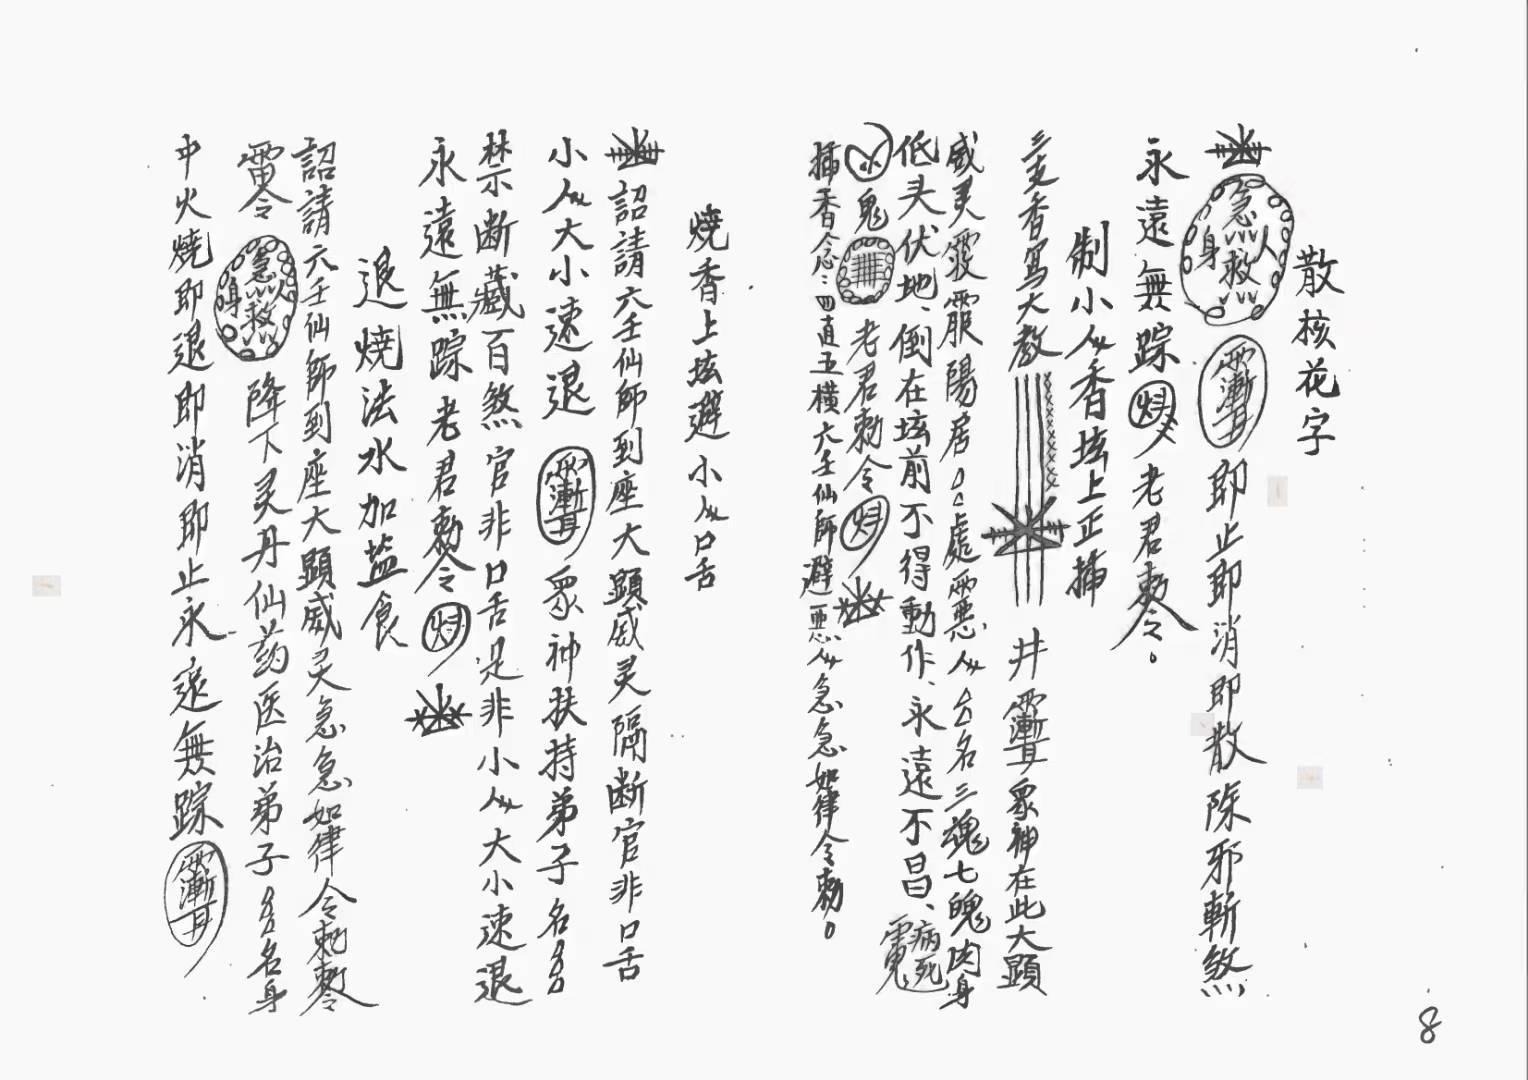 散核花字
急救人身 即止即消即散除邪斬煞
永遠無踪 老君敕令。
制小人香坛上正插
三支香写大教 井 衆神在此大顕
威灵 服陽居 處 悪人 名三魂七魄肉身
低头伏地、倒在坛前不得動作、永遠不昌、病死
鬼 老君勅令
插香念:四直五横六壬仙師避悪人急急如律令勅。
燒香上坛避小人口舌
詔請六壬仙師到座大顕威灵隔断官非口舌
小人大小速退 衆神扶持弟子名
禁断藏百煞官非口舌是非小人大小速退
永遠無踪老君勅令
退燒法水加盐食
詔請六壬仙師到座大顕威灵急急如律令
急救人身 降下灵丹仙药医治弟子 名身
中火燒即退即消即止永遠無踪
8